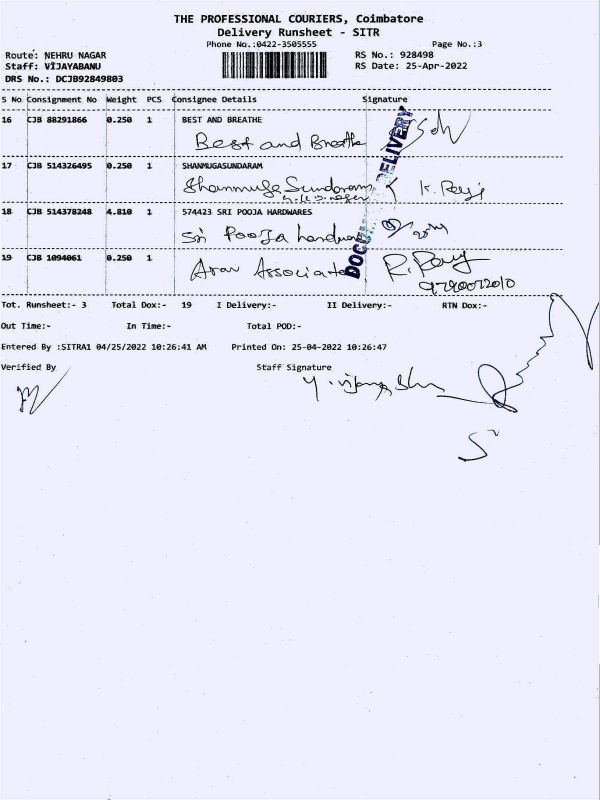 THE PROFESSIONAL COURIERS, Coimbatore
Delivery Runsheet - SITR
Phone No.:0422-3505555 Page No.:3
Route: NEHRU NAGAR RS No.: 928498
Staff: VIJAYABANU RS Date: 25-Apr-2022
DRS No.: DCJB92849803
S No Consignment No Weight PCS Consignee Details Signature
16 CJB 88291866 0.250 1 BEST AND BREATHE
Best and Breathe
17 CJB 514326495 0.250 1 SHANMUGASUNDARAM
Shanmuga Sundaram K. Raji
18 CJB 514378248 4.810 1 574423 SRI POOJA HARDWARES
Sri Pooja hardware
19 CJB 1094061 0.250 1
Arav Associate
DELIVERY
Tot. Runsheet:- 3 Total Dox:- 19 I Delivery:- II Delivery:- RTN Dox:-
Out Time:- In Time:- Total POD:-
Entered By :SITRA1 04/25/2022 10:26:41 AM Printed On: 25-04-2022 10:26:47
Verified By Staff Signature